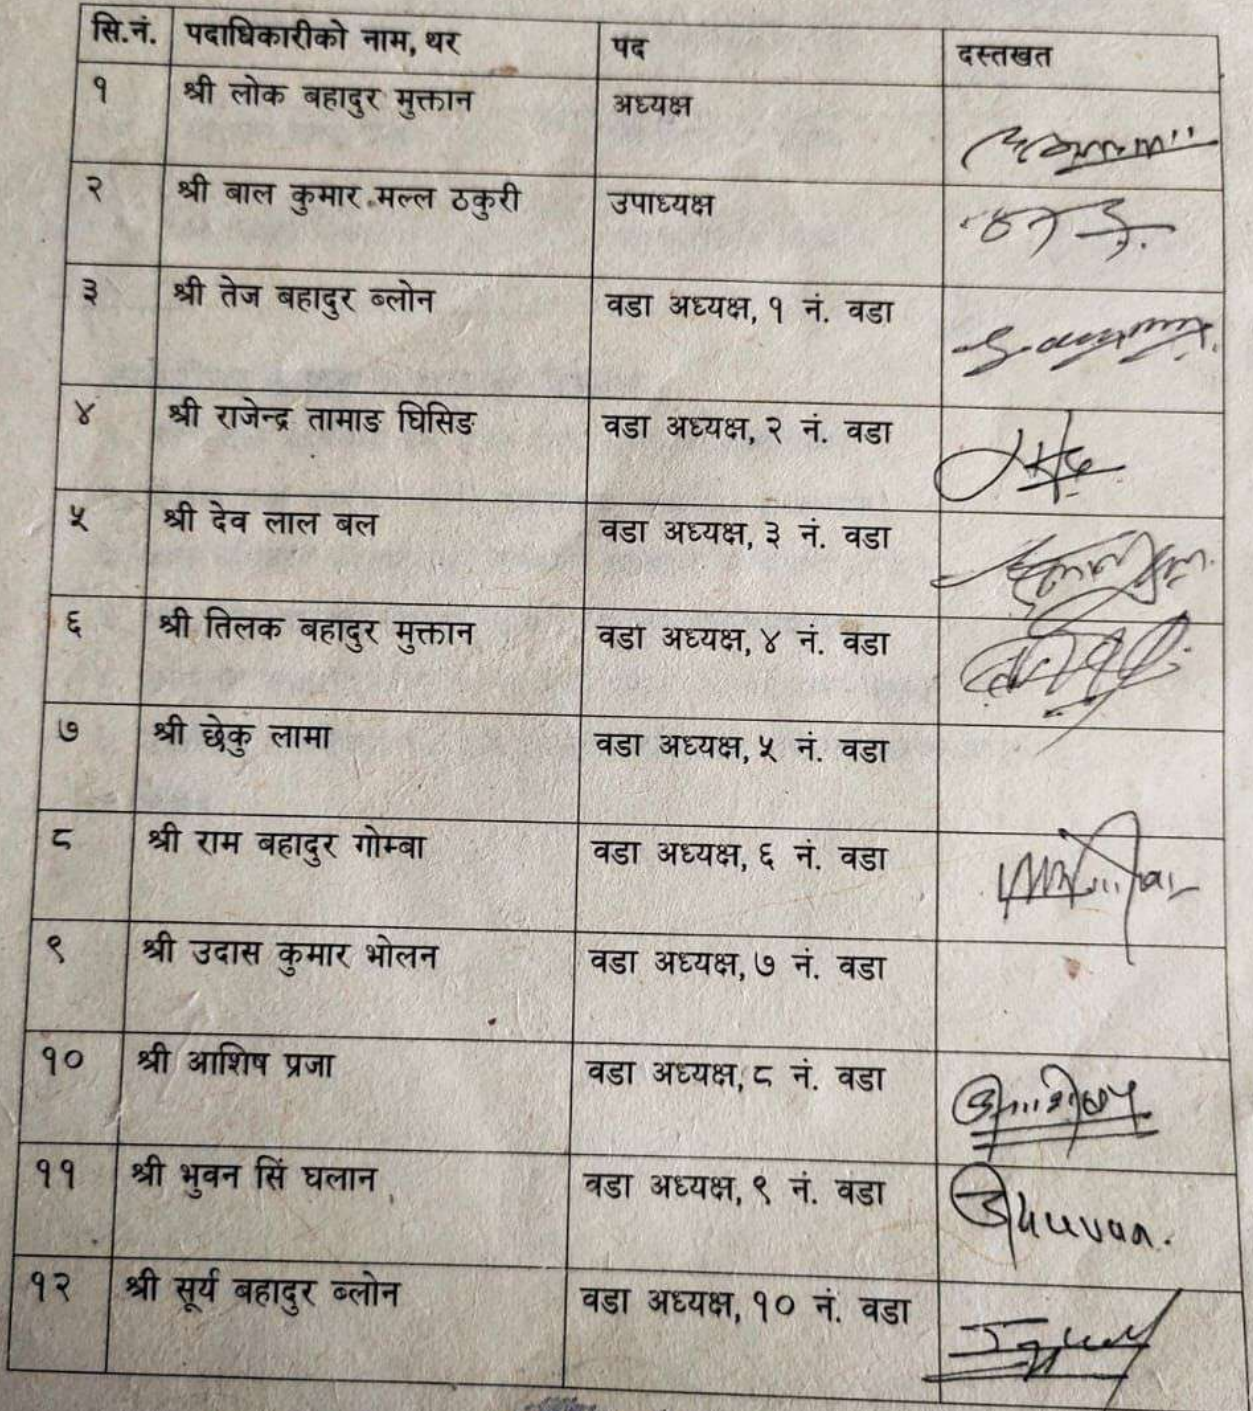 सि.नं. पदाधिकारीको नाम, थर पद दस्तखत
१ श्री लोक बहादुर मुक्तान अध्यक्ष
२ श्री बाल कुमार मल्ल ठकुरी उपाध्यक्ष
३ श्री तेज बहादुर ब्लोन वडा अध्यक्ष, १ नं. वडा
४ श्री राजेन्द्र तामाङ घिसिङ वडा अध्यक्ष, २ नं. वडा
५ श्री देव लाल बल वडा अध्यक्ष, ३ नं. वडा
६ श्री तिलक बहादुर मुक्तान वडा अध्यक्ष, ४ नं. वडा
७ श्री छेकु लामा वडा अध्यक्ष, ५ नं. वडा
८ श्री राम बहादुर गोम्बा वडा अध्यक्ष, ६ नं. वडा
९ श्री उदास कुमार भोलन वडा अध्यक्ष, ७ नं. वडा
१० श्री आशिष प्रजा वडा अध्यक्ष, ८ नं. वडा
११ श्री भुवन सिं घलान वडा अध्यक्ष, ९ नं. वडा Bhuvan.
१२ श्री सूर्य बहादुर ब्लोन वडा अध्यक्ष, १० नं. वडा